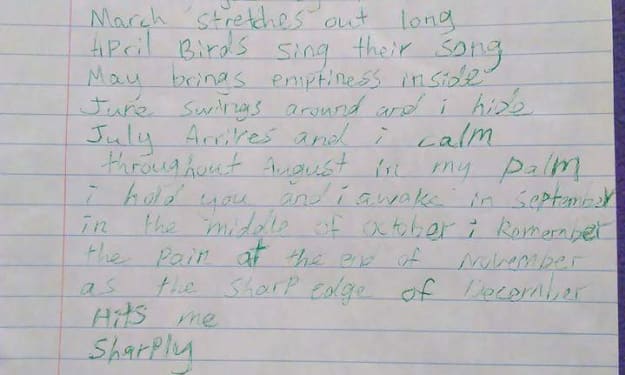 March stretches out long
April Birds sing their song
May brings emptiness inside
June swings around and i hide
July Arrives and i calm
throughout August in my palm
i hold you and i awake in September
in the middle of october i Remember
the pain at the end of November
as the sharp edge of December
Hits me
Sharply